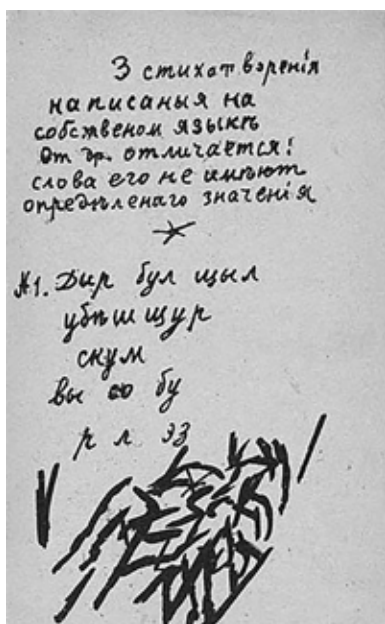 3 стихотвəренія
написаныя на
собственом языкѣ
от др. отличается:
слова его не имѣют
опредѣленаго значенія
№1. Дыр бул щыл
убѣшщур
скум
вы со бу
р л эз